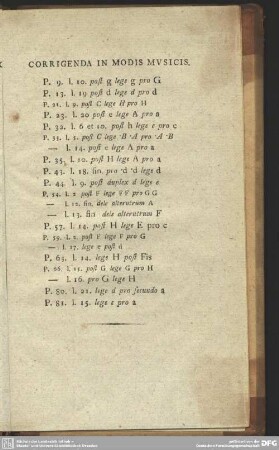 CORRIGENDA IN MODIS MVSICIS.
P. 9. l. 10. post g lege g pro G
P. 13. l. 19 post d lege d pro d
P. 21. l. 9. post C lege H pro H
P. 23. l. 20 post e lege A pro a
P. 32. l. 6 et 10. post h lege c pro c
P. 33. l. 2. post C lege B A pro A B
— l. 14. post e lege A pro a
P. 35. l. 10. post H lege A pro a
P. 43. l. 18. fin. pro d d lege d
P. 44. l. 9. post duplex d lege e
P. 54. l. 2. post V lege VV pro GG
— l. 12. fin. dele alterutrum A
— l. 13. fin dele alterutrum F
P. 57. l. 14. post H lege E pro c
P. 59. l. 2. post V lege V pro G
— l. 17. lege e post d
P. 65. l. 14. lege H post Fis
P. 76. l. 11. post G lege G pro H
— l. 16. pro G lege H
P. 80. l. 21. lege d pro secundo a
P. 81. l. 15. lege c pro a